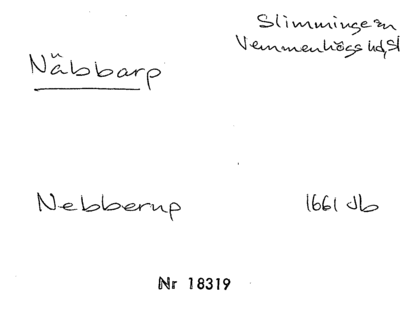 Slimminge sn
Vemmenhögs hd, Sk
Näbbarp
Nebberup 1661 Jb
Nr 18319